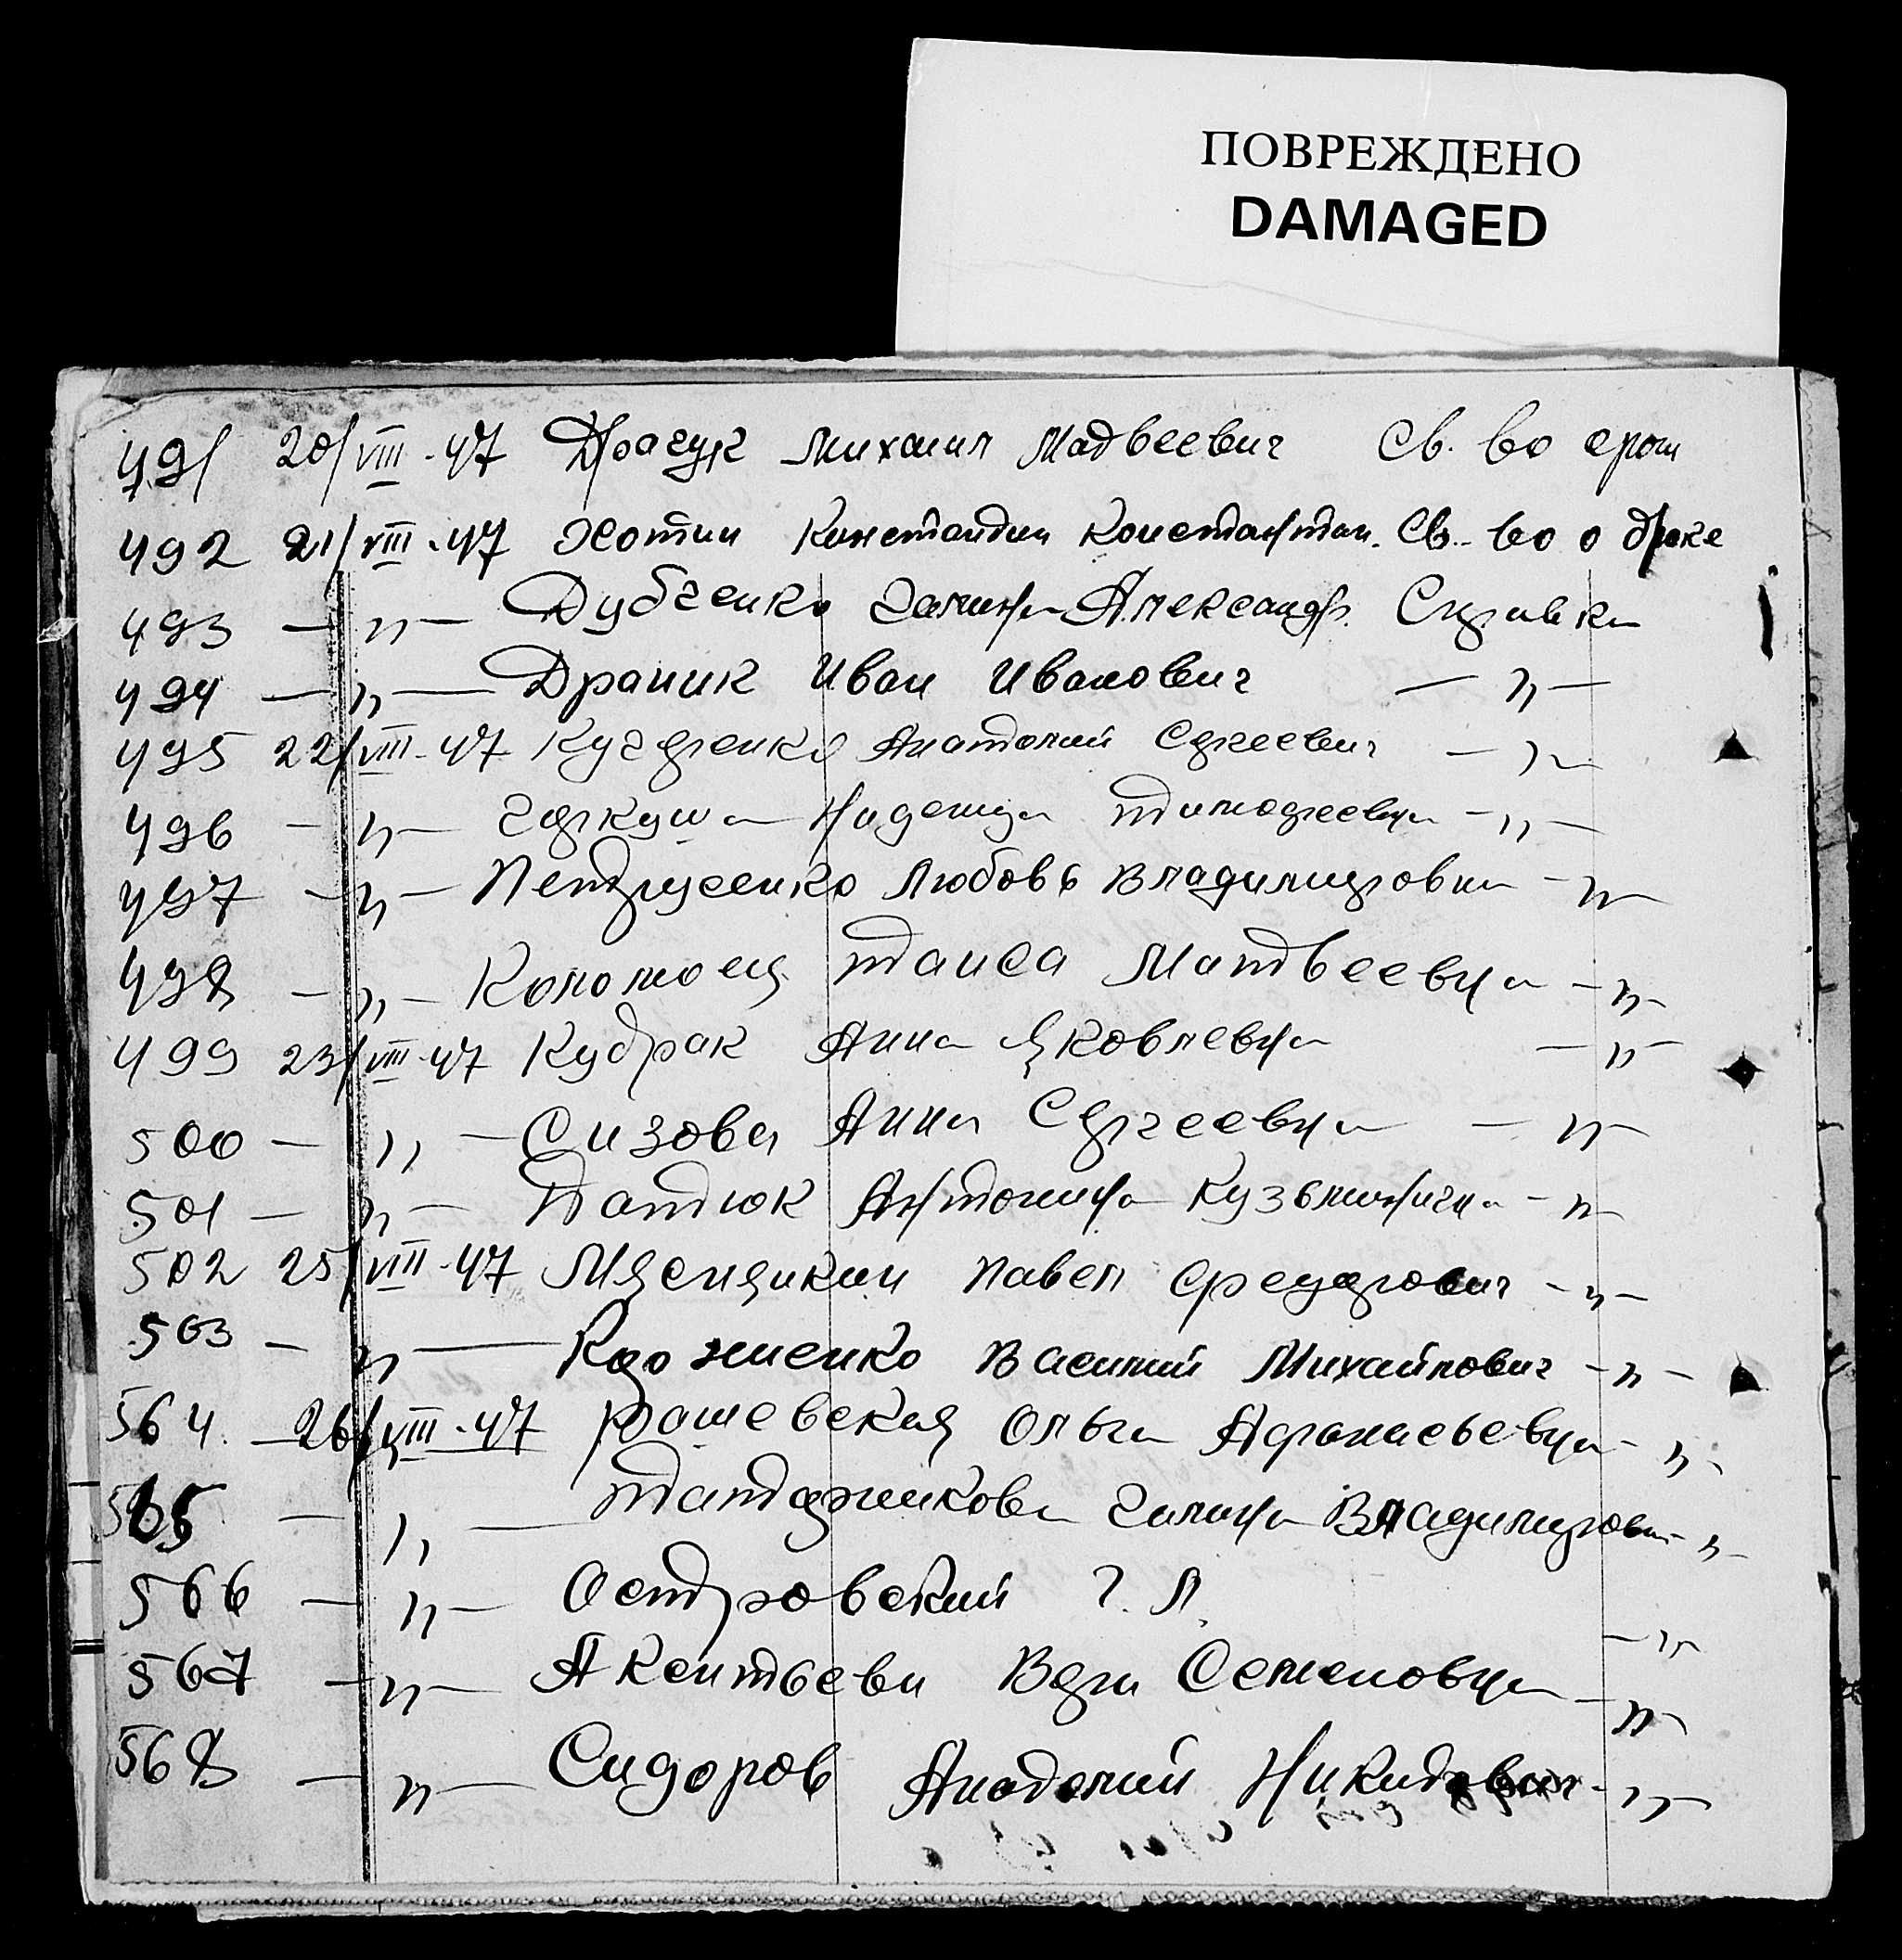 ПОВРЕЖДЕНО
DAMAGED
491 20/VIII-47 Драгук Михаил Матвеевич Св. во о рож
492 21/VIII-47 Хотин Константин Константин. Св. во о браке
493 — „ — Дубченко Галина Александр. Справка
494 — „ — Драник Иван Иванович — „ —
495 22/VIII-47 Кучеренко Анатолий Сергеевич — „ —
496 — „ — Геркуша Надежда Тимофеевна — „ —
497 — „ — Петрусенко Любовь Владимировна — „ —
498 — „ — Коломоец Таиса Матвеевна — „ —
499 23/VIII-47 Кудрак Анна Яковлевна — „ —
500 — „ — Сизова Анна Сергеевна — „ —
501 — „ — Патиюк Антонина Кузьминична — „ —
502 25/VIII-47 Павел Федорович — „ —
503 — „ — Василий Михайлович — „ —
564. — 26/VIII-47 Рашевская Ольга Афанасьевна — „ —
565 — „ — Татарникова Галина Владимировн — „ —
566 — „ — Островский Г. Л. — „ —
567 — „ — Аксентьева Вера Семеновна — „ —
568 — „ — Сидоров Анатолий Никитович — „ —